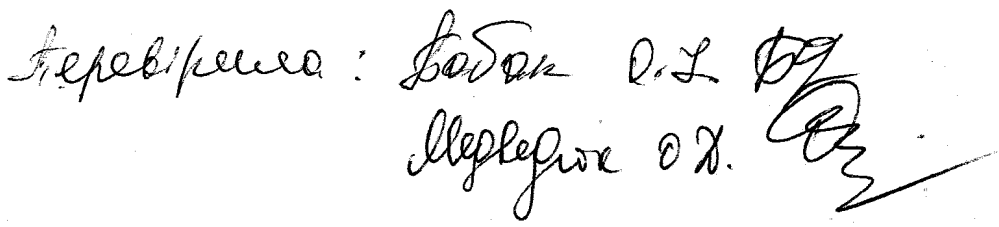 Перевірила: Бабак О.І.
Медведюк О Д.